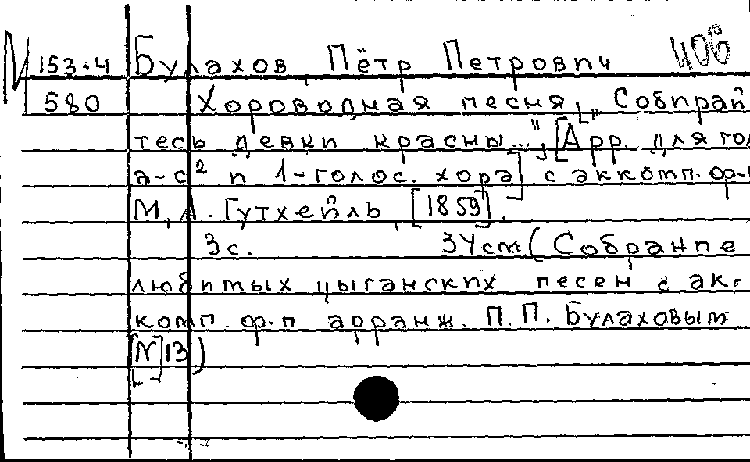 153-4 Булахов Пётр Петрович 408
580 Хороводная песня „Собирай
тесь девки красны...", [Арр. для гол
а-с² и 1-голос. хора] с аккомп. ф-п
М., А. Гутхейль, [1859].
3с. 34см (Собрание
любимых цыганских песен с ак-
комп ф-п арранж. П.П. Булаховым
[N]13)